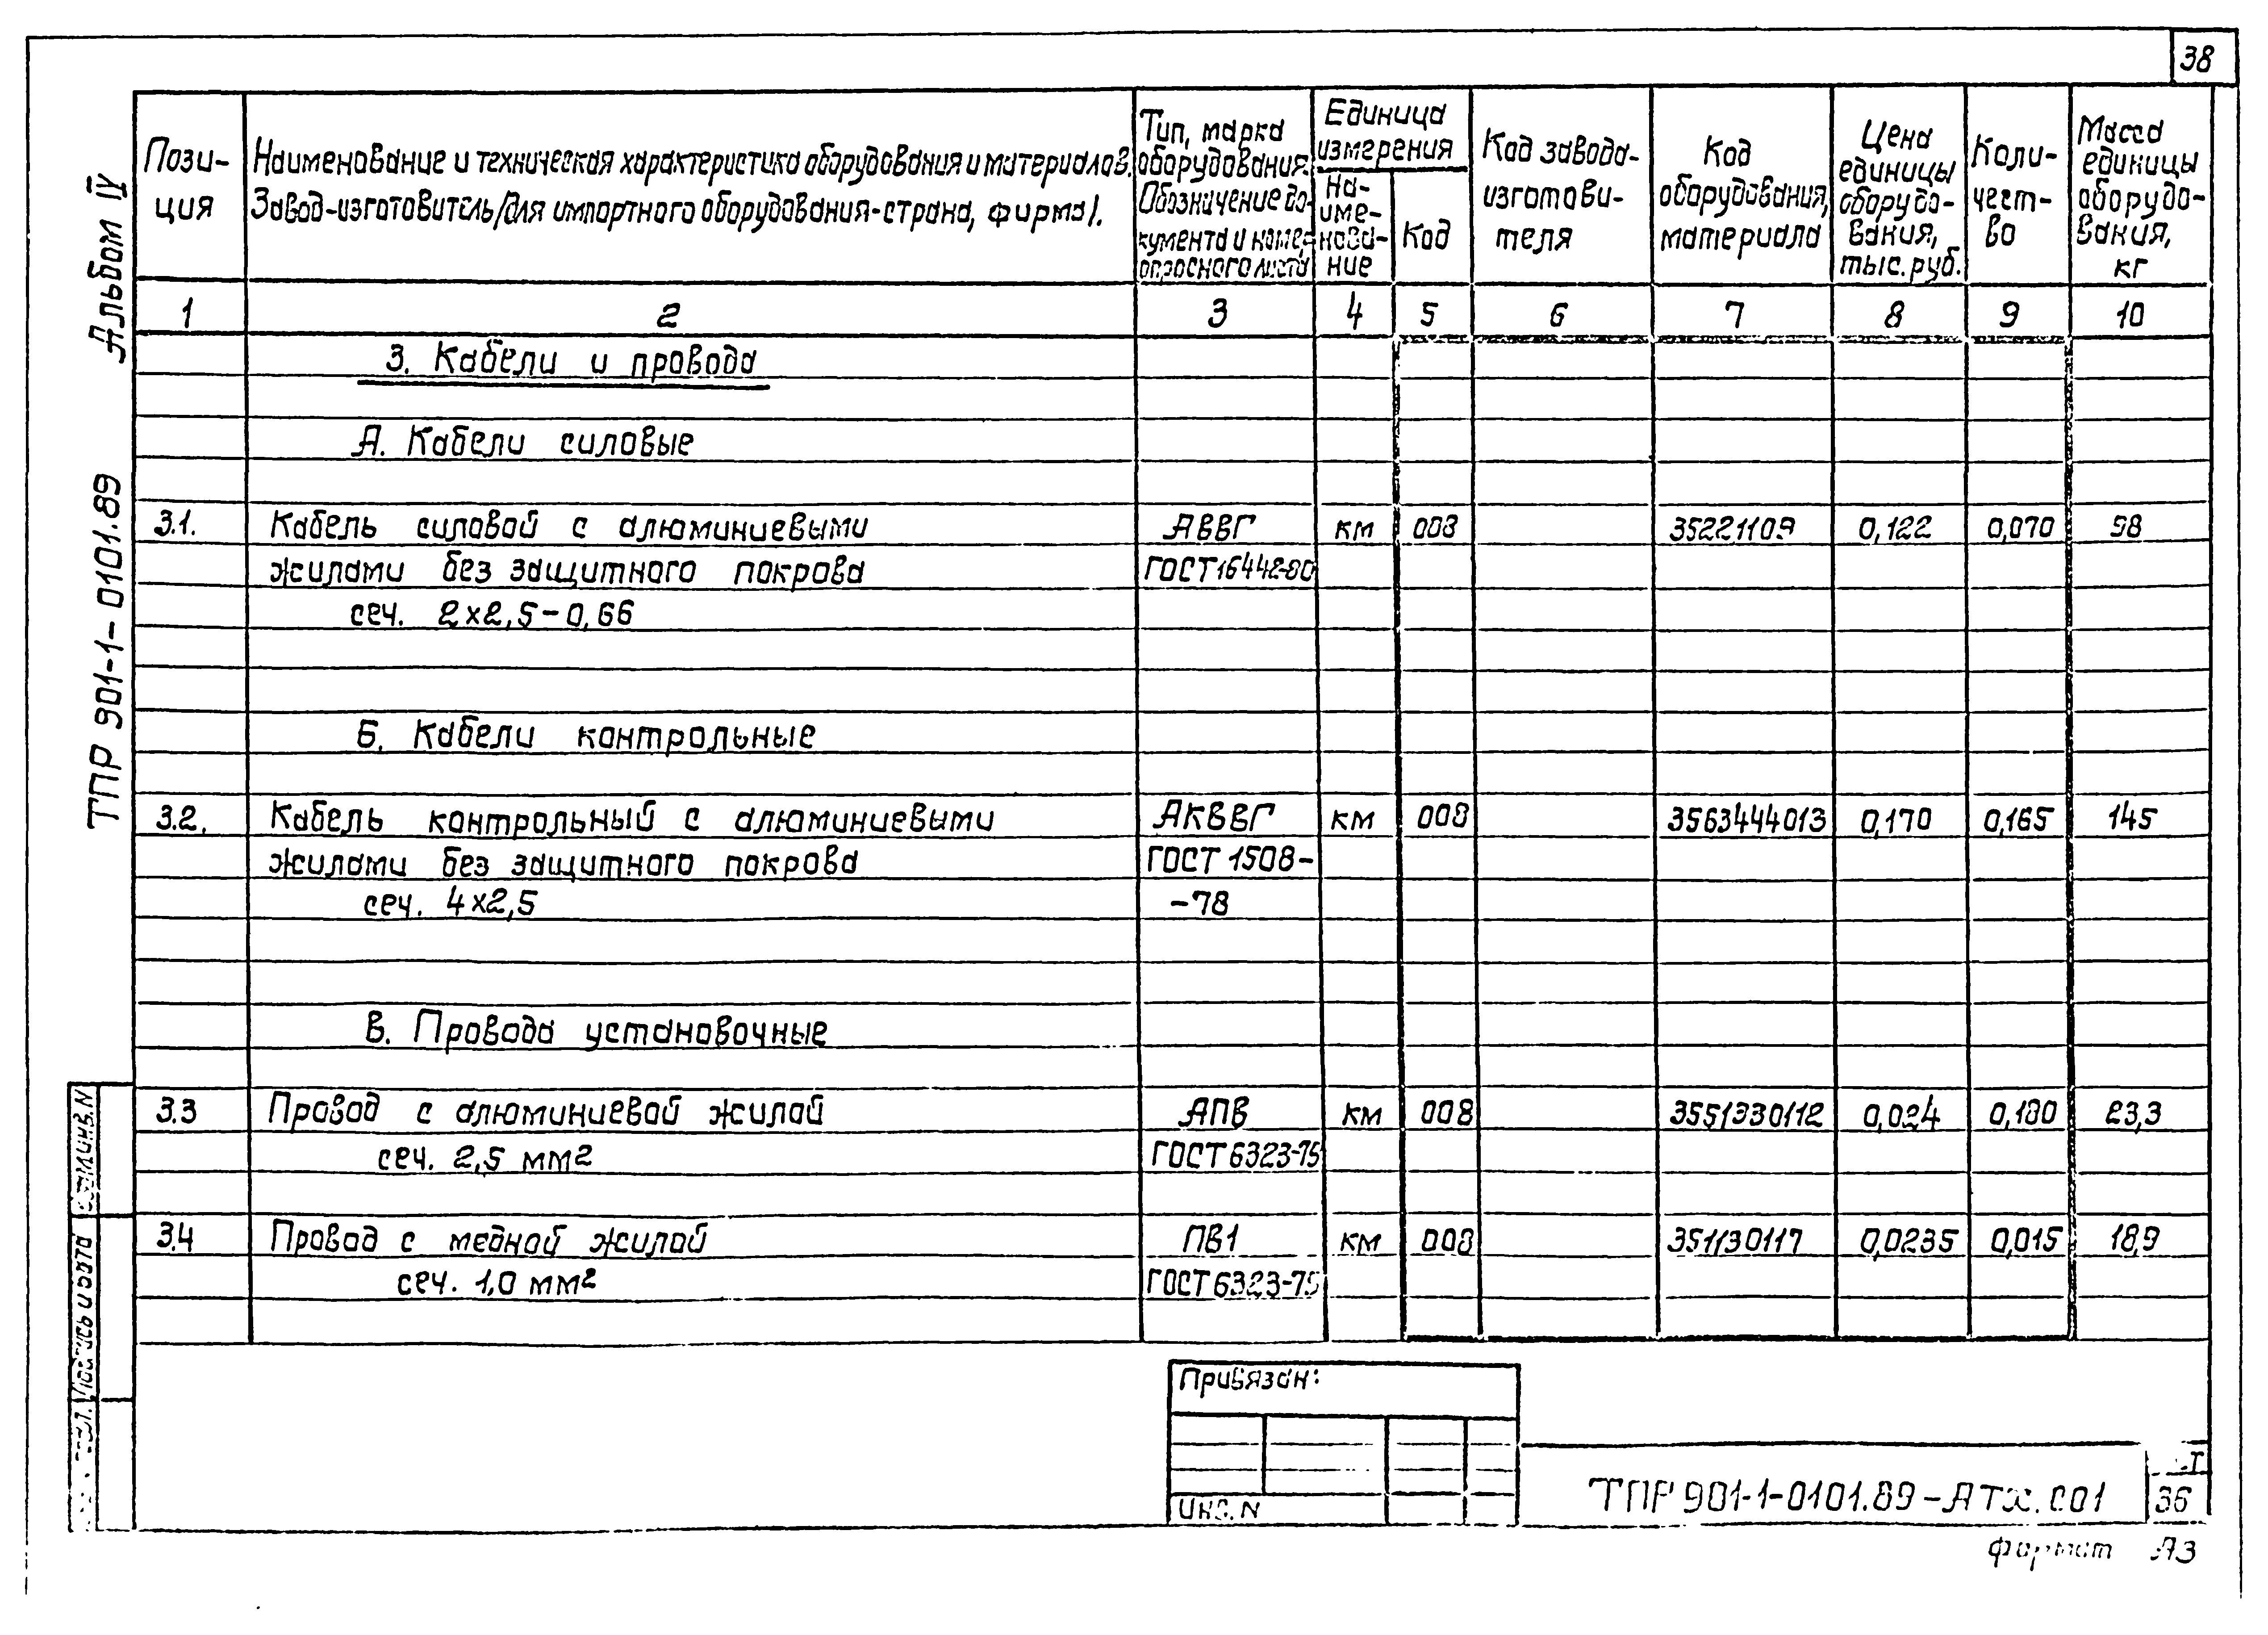 38
Альбом IV
ТПР 901-1-0101.89
Пози-
ция
Наименование и техническая характеристика оборудования и материалов.
Завод-изготовитель/для импортного оборудования-страна, фирма/.
Тип, марка
оборудования.
Обозначение до-
кумента и номер
опросного листа
Единица
измерения
На-
име-
нова-
ние
Код
Код завода-
изготови-
теля
Код
оборудования,
материала
Цена
единицы
оборудо-
вания,
тыс. руб.
Коли-
чест-
во
Масса
единицы
оборудо-
вания,
кг
1 2 3 4 5 6 7 8 9 10
3. Кабели и провода
А. Кабели силовые
3.1. Кабель силовой с алюминиевыми АВВГ км 008 35221109 0,122 0,070 98
жилами без защитного покрова ГОСТ16442-80
сеч. 2х2,5-0,66
Б. Кабели контрольные
3.2. Кабель контрольный с алюминиевыми АКВВГ км 008 3563444013 0,170 0,165 145
жилами без защитного покрова ГОСТ 1508-
сеч. 4х2,5 -78
В. Провода установочные
3.3 Провод с алюминиевой жилой АПВ км 008 3551330112 0,024 0,180 23,3
сеч. 2,5 мм2 ГОСТ6323-75
3.4 Провод с медной жилой ПВ1 км 008 351130117 0,0235 0,015 18,9
сеч. 1,0 мм2 ГОСТ6323-75
Привязан:
Инв. N
ТПР 901-1-0101.89-АТХ.СО1
36
Взам.инв.N
Подпись и дата
формат А3